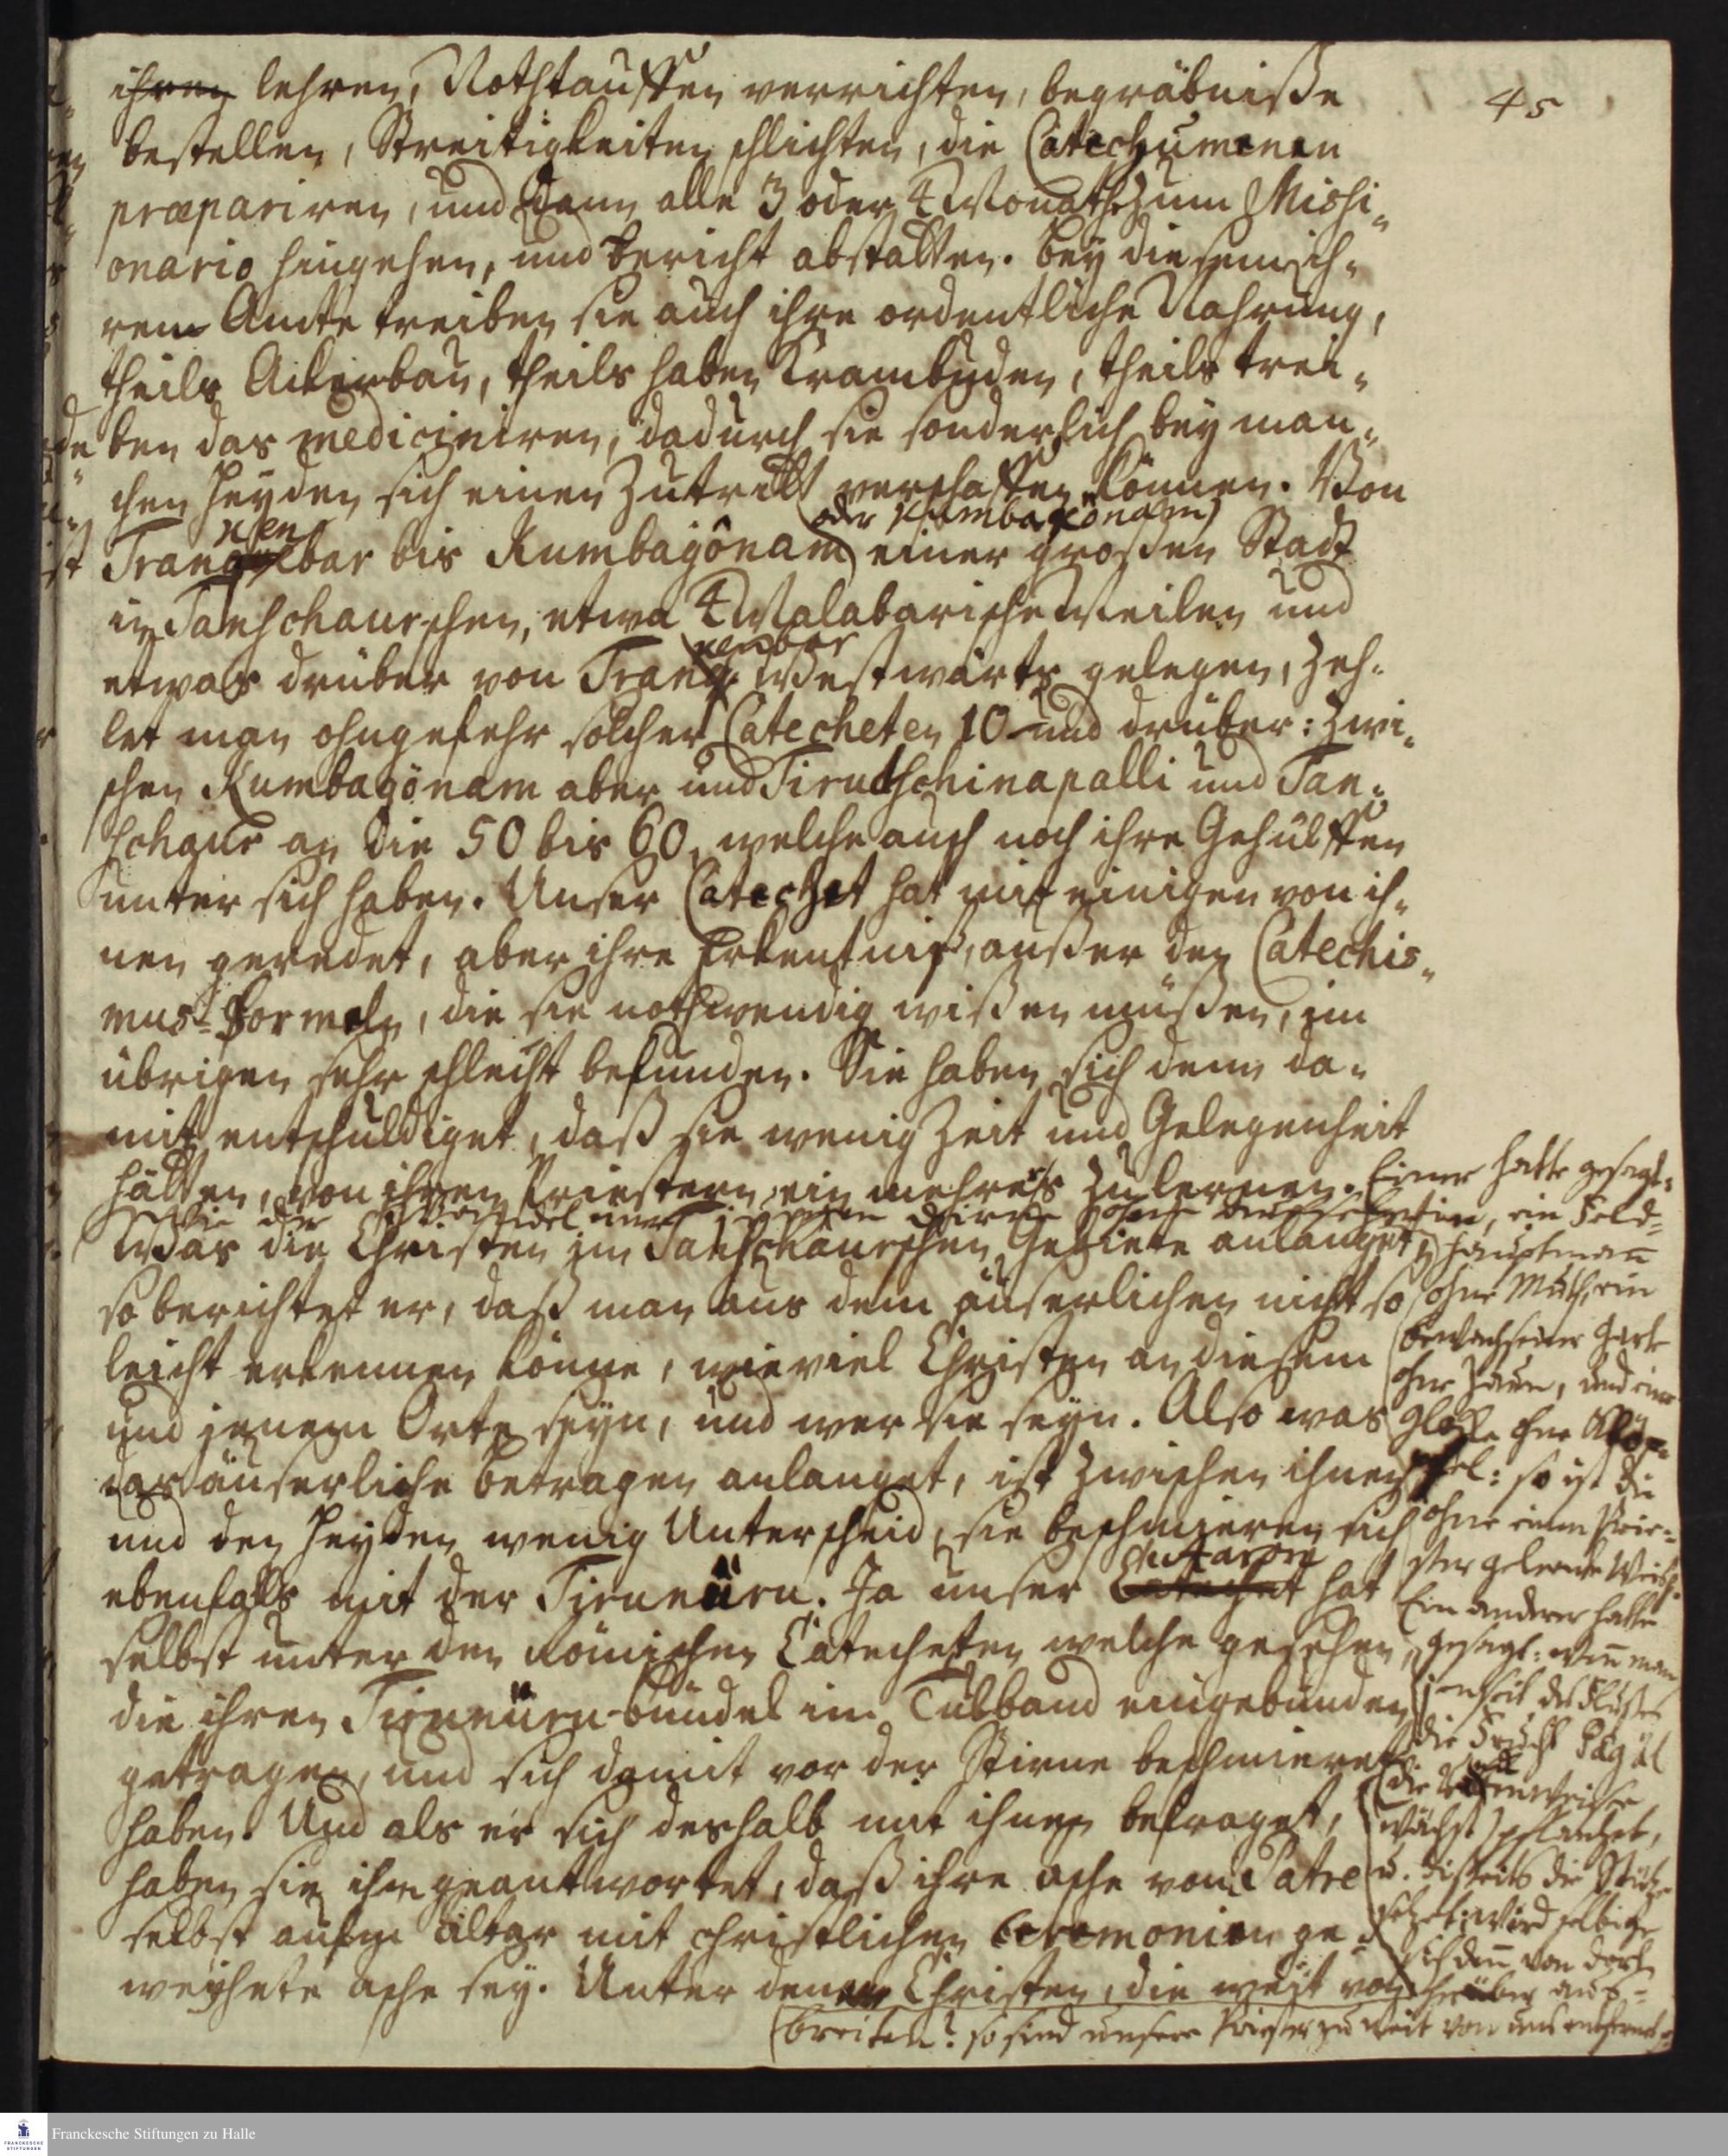 45
ihren lehren, Nothtauffen verrichten, begräbniße
bestellen, Streitigkeiten schlichten, die Catechumenen
præpariren, und dann alle 3 oder 4 Monathe zum Missi-
onario hingehen, und bericht abstatten. Bey diesem ih-
rem Amte treiben sie auch ihre ordentliche Nahrung,
theils Ackerbau, theils haben Krambuden, theils trei-
ben das mediciniren, dadurch sie sonderlich bey man-
chen Heyden sich einen Zutritt verschaffen können. Von
oder Kumbagonam)
ken
Trangebar bis Kumbagônam einer großen Stadt
in Tanschaurschen, etwa 4 Malabarische Meilen und
kenbar
etwas drüber von Trang. Westwärts gelegen, zeh-
let man ohngefehr solcher Catecheten 10 und drüber: zwi-
schen Kumbagônam aber und Tirutschinapalli und Tan-
schaur an die 50 bis 60, welche auch noch ihre Gehülffen
unter sich haben. Unser Catechet hat mit einigen von ih-
nen geredet, aber ihre Erkentniß, außer den Catechis-
mus-Formeln, die sie nothwendig wißen müßen, im
übrigen sehr schlecht befunden. Sie haben sich denn da-
mit entschuldiget, daß sie wenig Zeit und Gelegenheit
hätten, von ihren Priestern ein mehrers zu lernen.
Was die Christen im Tanschaurschen Gebiete anlanget,
so berichtet er, daß man aus dem äuserlichen nicht so
leicht erkennen könne, wie viel Christen an diesem
und jenem Orte seyn, und wer sie seyn. Also was
das äuserliche betragen anlanget, ist zwischen ihnen
und den Heyden wenig Unterscheid, sie beschmieren sich
de Aaron
ebenfalls mit der Tiruneüru. Ja unser Catechet hat
selbst unter den Römischen Catecheten welche gesehen,
die ihren Tiruneüru-bündel im Tulband eingebunden
getragen, und sich damit vor der Stirne beschmieret
haben. Und als er sich deshalb mit ihnen befraget,
haben sie ihm geantwortet, daß ihre asche vom Patre
selbst aufm Altar mit christlichen Ceremonien ge-
weyhete asche sey. Unter denen Christen, die weit von
Einer hatte gesagt:
ein Feld-
hauptmann
ohne Muth, ein
bewachsener Garte
ohne Zaun, und eine
Glocke ohne Klöp-
pel: so ist die
ohne einen Prie-
ster gelernte Weish.
Ein anderer hatte
gesagt: wenn man
jenseit des Flußes
die Frucht Pagúl
wächst) pflantzet,
u. disseits die Stütze
setzet: wird selbige
sich denn von dort
herüber aus-
breiten? so sind unsere Priester zu weit von uns entfernet.
Franckesche Stiftungen zu Halle